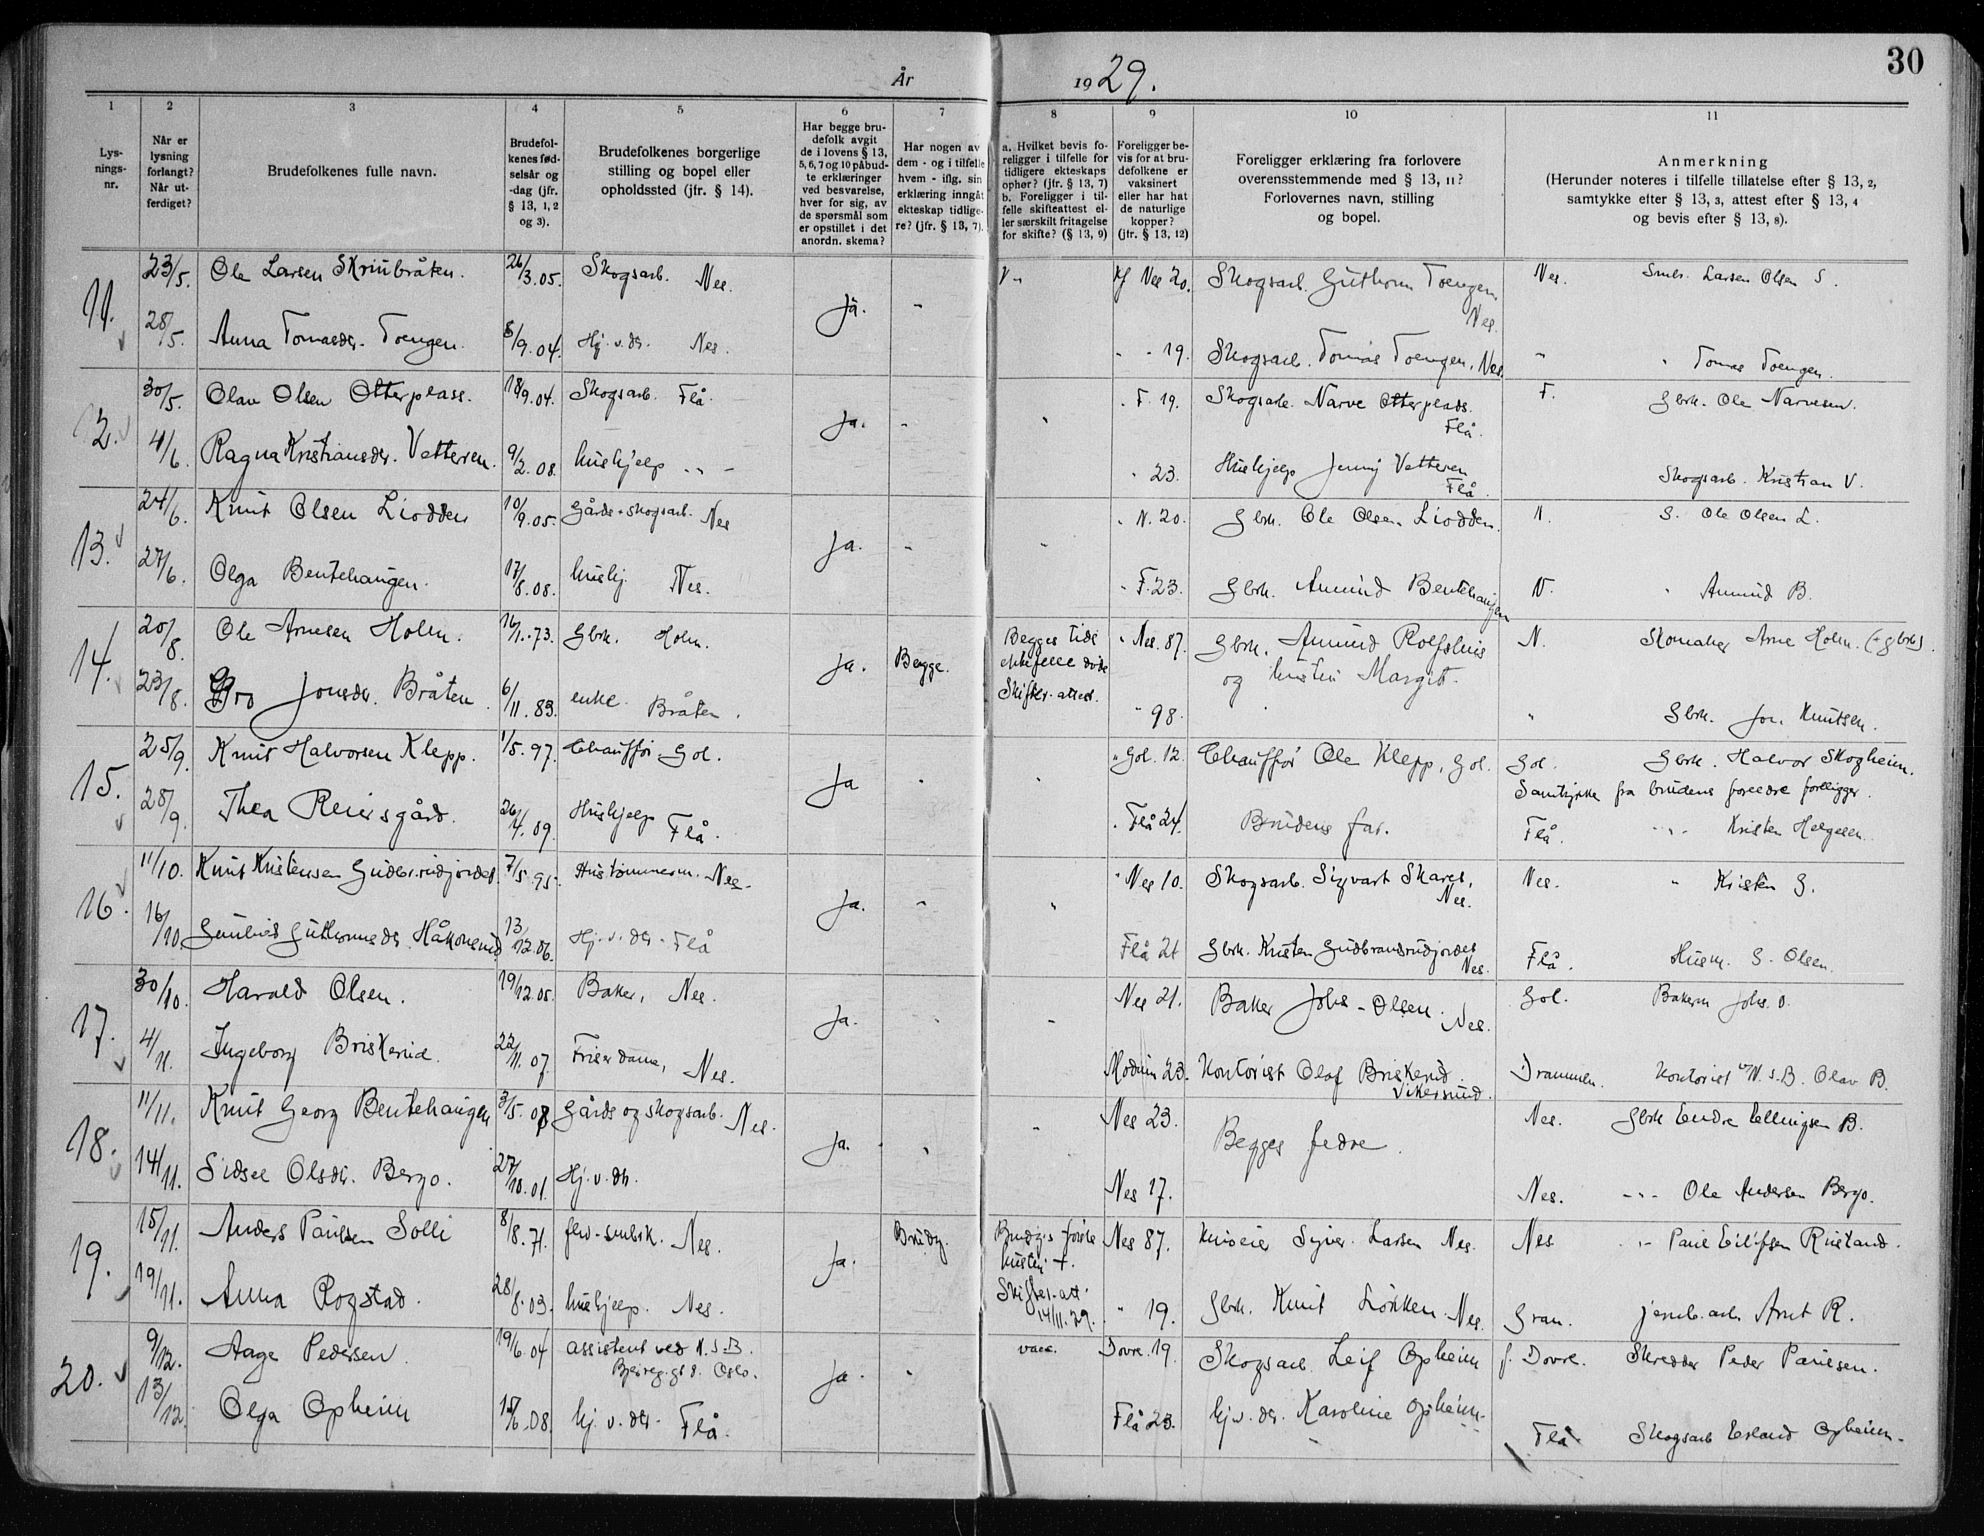 30
År 1929.
1 2 3 4 5 6 7 8 9 10 11
Lys-
nings-
nr.
Når er
lysning
forlangt?
Når ut-
ferdiget?
Brudefolkenes fulle navn.
Brudefol-
kenes fød-
selsår og
-dag (jfr.
§ 13, 1, 2
og 3).
Brudefolkenes borgerlige
stilling og bopel eller
opholdssted (jfr. § 14).
Har begge bru-
defolk avgit
de i lovens § 13,
5, 6, 7 og 10 påbud-
te erklæringer
ved besvarelse,
hver for sig, av
de spørsmål som
er opstillet i det
anordn. skema?
Har nogen av
dem - og i tilfelle
hvem - iflg. sin
erklæring inngåt
ekteskap tidlige-
re? (jfr. § 13, 7).
a. Hvilket bevis fo-
religger i tilfelle for
tidligere ekteskaps
ophør? (jfr. § 13, 7)
b. Foreligger i til-
felle skifteattest el-
ler særskilt fritagelse
for skifte? (§ 13, 9)
Foreligger be-
vis for at bru-
defolkene er
vaksinert
eller har hat
de naturlige
kopper?
(jfr. § 13, 12)
Foreligger erklæring fra forlovere
overensstemmende med § 13, 11?
Forlovernes navn, stilling
og bopel.
Anmerkning
(Herunder noteres i tilfelle tillatelse efter § 13, 2,
samtykke efter § 13, 3, attest efter § 13, 4
og bevis efter § 13, 8).
11. 23/5. Ole Larsen Skrinbråten. 26/3.05. Skogsarb. Nes. Ja. - Nes 20. Skogsarb. Guthorm Toengen. Nes. Nes. Smbr. Larsen Olsen S.
28/5. Anna Tomasdr. Toengen. 5/9.04. Hj. v. dr. Nes. - - 19. Skogsarb. Tomas Toengen, Nes. " " Tomas Toengen.
12. 30/5. Olav Olsen Otterplass. 18/9.04. Skogsarb. Flå. Ja. - " F. 19. Skogsarb. Narve Otterplads. Flå. F. Gbrk. Ole Narvesen.
4/6. Ragna Kristiansdr. Vetteren. 9/2.08. hushjelp " - " 23. Hushjelp Jenny Vetteren Flå. Skogsarb. Kristian V.
13. 24/6. Knut Olsen Liodden 10/9.05. Gårds- skogsarb. Nes Ja. - " " N. 20. Gbrk. Ole Olsen Liodden. N. G. Ole Olsen L.
27/6. Olga Bentehaugen. 17/8.08. hushj. Nes. " F. 23. Gbrk. Anmund Bentehaugen N. " Anmund B.
14. 20/8. Ole Arnesen Holm. 16/1.73. Gbrk. Holm. Ja. Begge. Begges tidl ektefelle døde Skifter.attest. " Nes. 87. Gbrk. Anmund Rolfshus og hustru Margit. N. Skomaker Arne Holm. (+ gbrk).
23/8. Gro Jonsdr. Bråten. 6/11.83. enke. Bråten. " 98. " Gbrk. Jon Knutsen.
15. 25/9. Knut Halvorsen Klepp. 1/5.97. Chauffør. Gol. Ja " " " Gol. 12. Chauffør Ole Klepp, Gol. Gol. Gbrk. Halvor Skogheim.
Samtykke fra brudens foreldre foreligger.
28/9. Thea Reiersgård. 26/4.09. Hushjelp Flå. " Flå 24. Brudens far. Flå. " " Kristen Helgesen.
16. 11/10. Knut Kristensen Gudbr.rudjordet. 7/5.95. Hustømmerm. Nes. Ja. " " " Nes 10. Skogsarb. Sigvart Skares, Nes. Nes. " Kristen G.
16/10. Guthormsdr. Håkonrud 13/12.06. Hj. v. dr. Flå Flå 21 Gbrk. Kristen Gudbrandsrudjordet Nes. Flå. Husm. G. Olsen.
17. 30/10. Harald Olsen. 19/12.05. Baker, Nes. Ja. " - Nes 21. Baker Johs - Olsen. Nes. Gol. Bakerm Johs. O.
4/11. Ingeborg Briskerud. 22/11.07. Friserdame, Nes. Modum 23. Kontorist Olaf Briskerud. Vikersund. Drammen. Kontorist v/N.S.B. Olav B.
18. 11/11. Knut Georg Bentehaugen 3/5.07 Gårds og skogsarb. Nes. Ja. " " Nes 23. Begges fedre. Nes. Gbrk Endre Ellingsen B.
14/11. Sidsel Olsdr. Bergo. 27/10.01. Hj. v. dr. Nes 17. Nes. " " Ole Andersen Bergo.
19. 15/11. Anders Paulsen Solli 8/8.71. Nes. Ja. Brudg. Brudgs første hustru +. Nes 87. Huseier Syver Larsen Nes. Nes " Paul Eilifsen Rustand.
19/11. Anna Rogstad. 28/8.03. hushjelp. Nes. Skifter.att. 14/11.29. " 19. Gbrk. Knut Løkken. Nes. Gran. jernb.arb Arnt R.
20. 9/12. Aage Pedersen. 19/6.04 assistent ved N.S.B. Oslo. Ja. " vacc. Dovre. 19. Skogsarb. Leif Opheim f. Dovre. Skredder Peder Paulsen.
13/12. Olga Opheim 6.08. hj. v. dr. Flå. Flå 23. hj.v. dr. Karoline Opheim. Flå Skogsarb Erland Opheim.